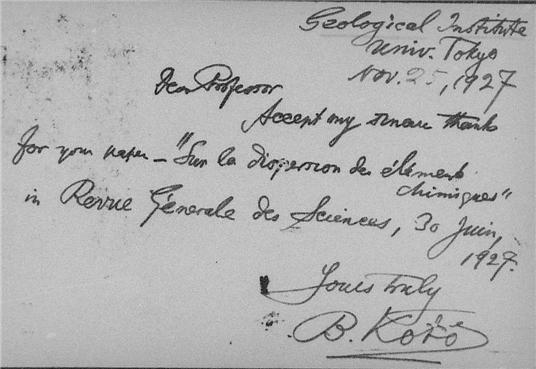 Geological Institute
Univ. Tokyo
Nov. 25, 1927
Dear Professor
Accept my sincere thanks
for your paper – "Sur la dispersion des élément
chimiques"
in Revue Génerale des Sciences, 30 Juin,
1927.
Yours truly
B. Kotô